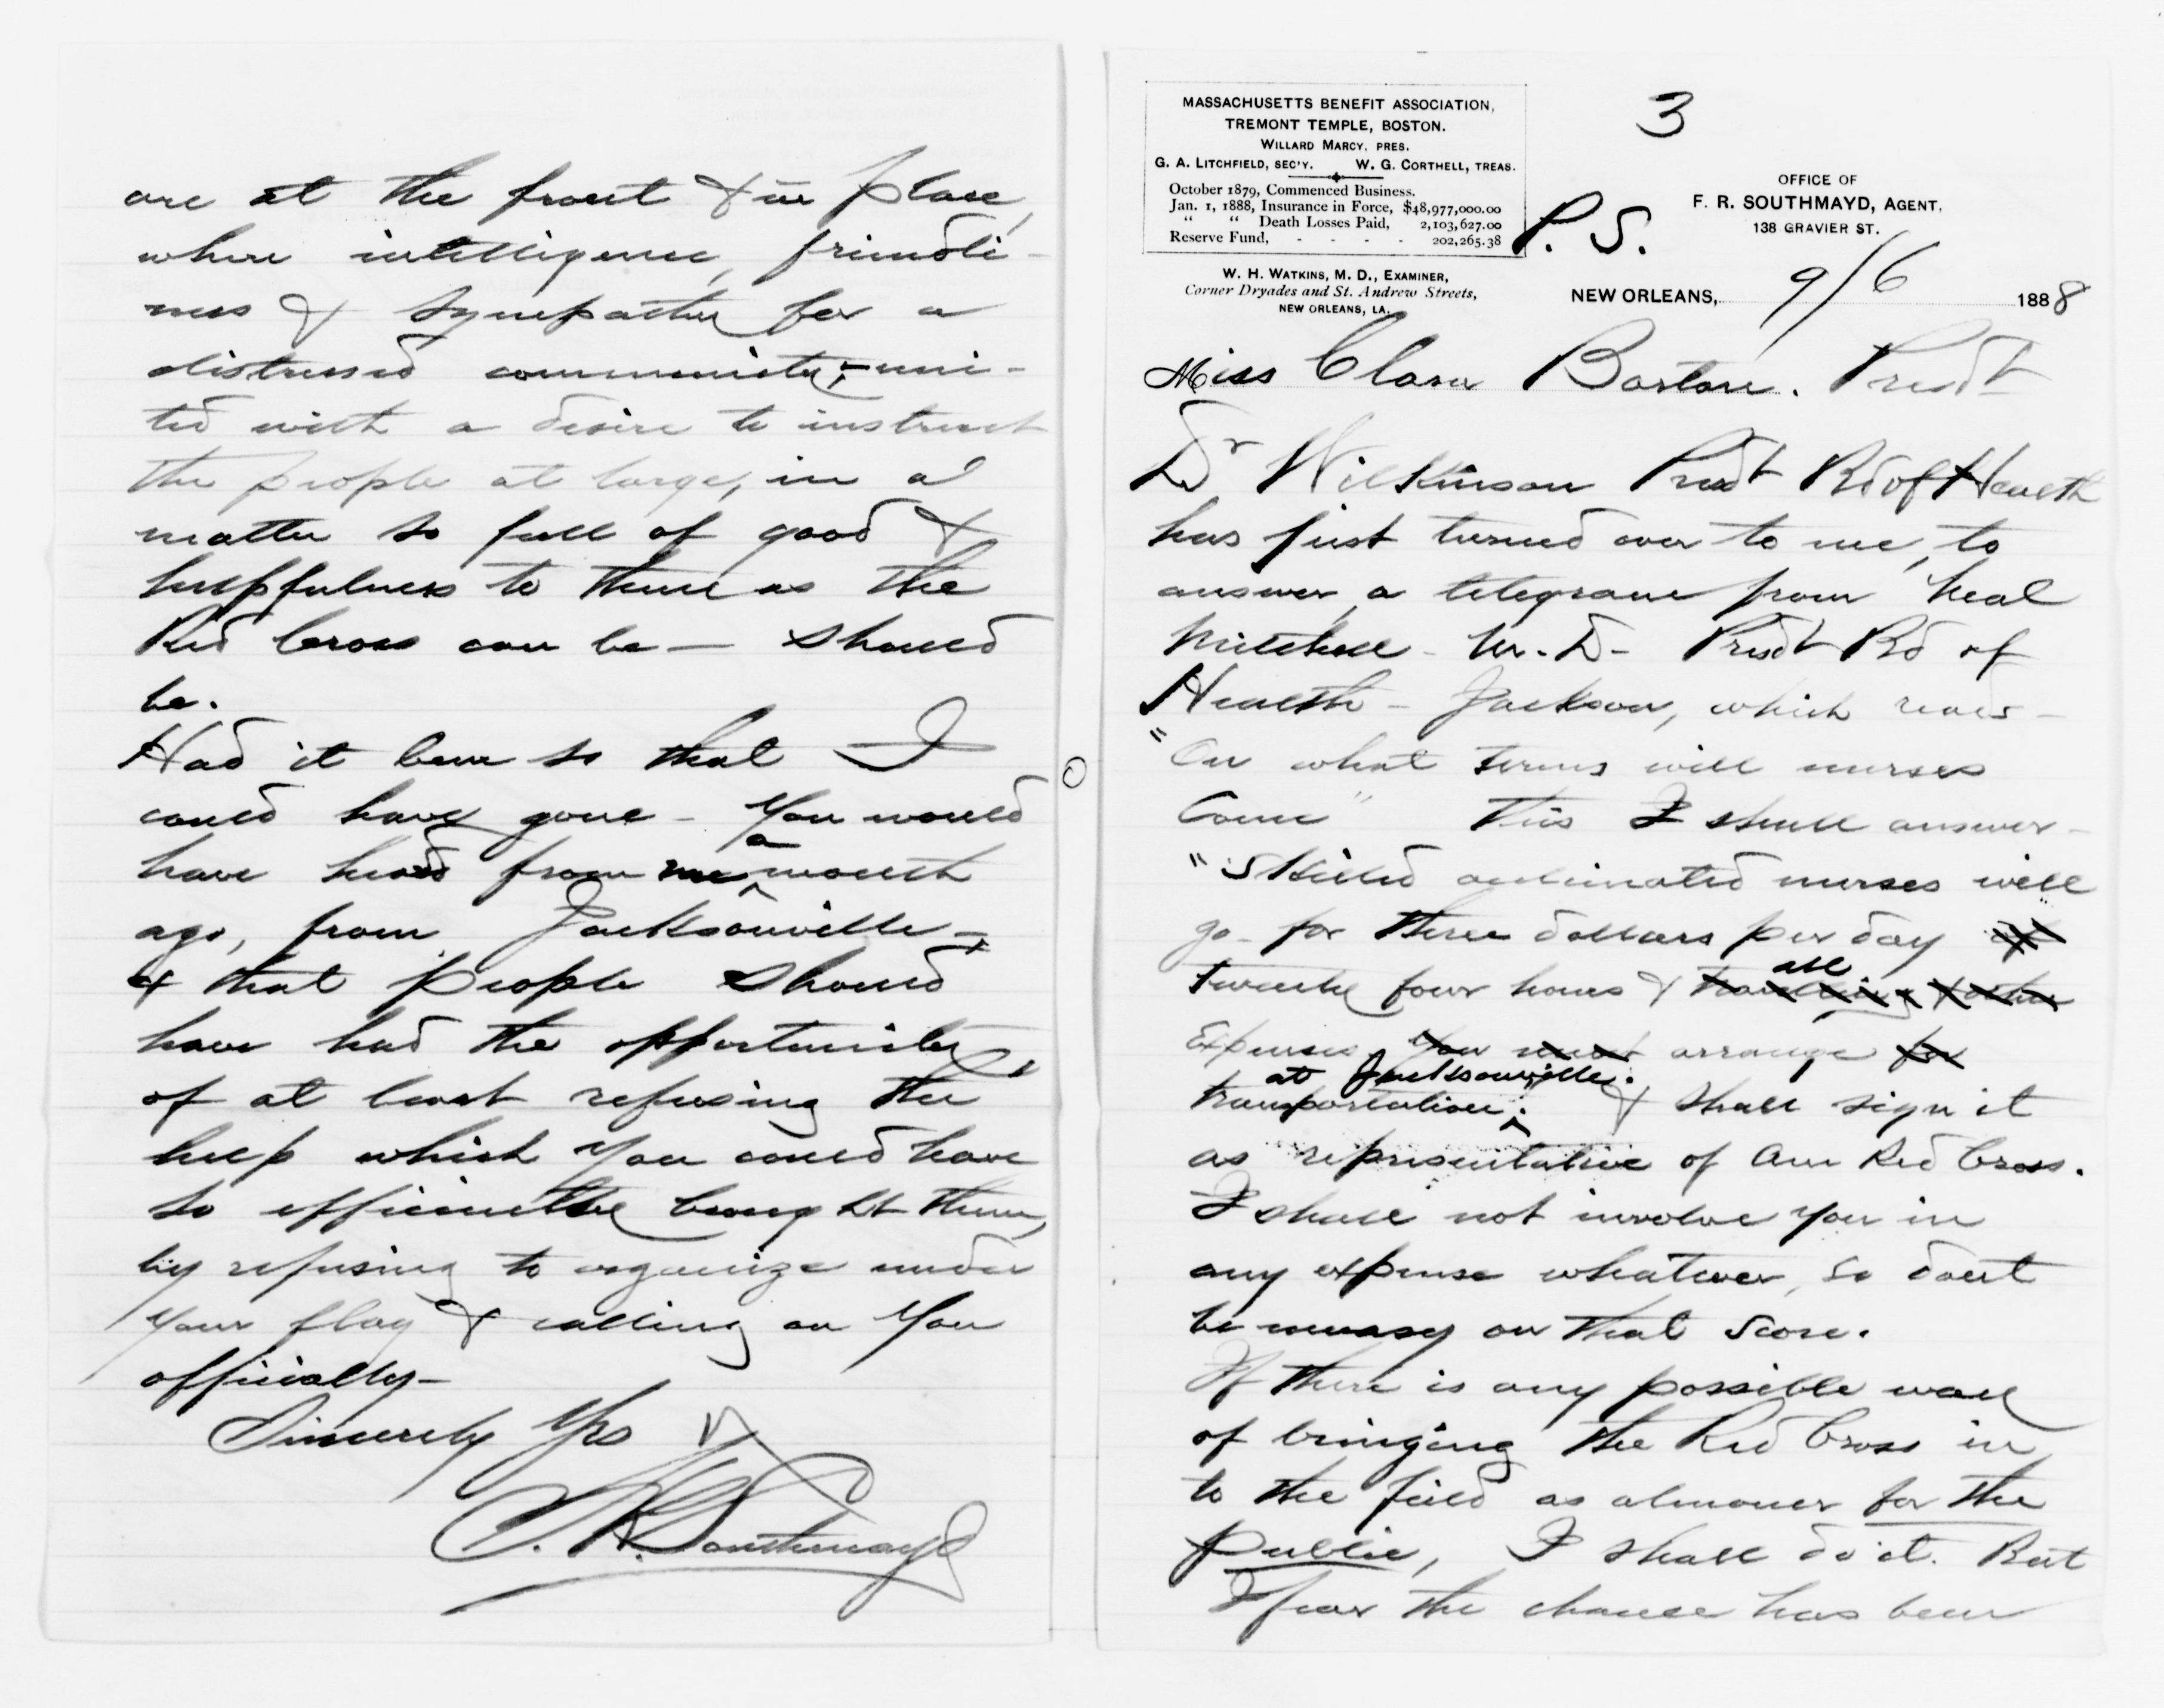 are at the front & in place,
where intelligence, friendli-
ness & sympathy for a
distressed community;- uni-
ted with a desire to instruct
the people at large, in a
matter so full of good &
helpfulness to them as the
Red Cross can be — should
be.
Had it been so that I
could have gone - You would
have heard from me a month
ago, from Jacksonville -
& that people should
have had the opportunity
of at least refusing the
help which you could have
so efficiently brought them,
by refusing to organize under
your flag & calling on you
officially-
Sincerely Yrs
F. R. Southmayd
3
MASSACHUSETTS BENEFIT ASSOCIATION,
TREMONT TEMPLE, BOSTON.
WILLARD MARCY, PRES.
G. A. LITCHFIELD, SEC'Y. W. G. CORTHELL, TREAS.
October 1879, Commenced Business.
Jan. 1, 1888, Insurance in Force, $48,977,000.00
" " Death Losses Paid, 2,103,627.00
Reserve Fund, - - - - 202,265.38
W. H. WATKINS, M. D., EXAMINER,
Corner Dryades and St. Andrew Streets,
NEW ORLEANS, LA.
P. S.
OFFICE OF
F. R. SOUTHMAYD, AGENT,
138 GRAVIER ST.
NEW ORLEANS, 9/6 1888
Miss Clara Barton. Presdt
Dr Wilkinson Presdt Bd of Health
has just turned over to me, to
answer, a telegram from Neal
Mitchell - M.D- Presdt Bd of
Health - Jackson, which reads -
"On what terms will nurses
Come" This I shall answer -
"Skilled acclimated nurses will
go - for three dollars per day
twenty four hours & travelling & other
all
Expenses, You must arrange for
at Jacksonville.
transportation; & shall sign it
as representative of Am Red Cross.
I shall not involve you in
any expense whatever, so dont
be uneasy on that score.
If there is any possible way
of bringing the Red Cross in
to the field as almoner for the
public, I shall do it. But
I fear the chance has been